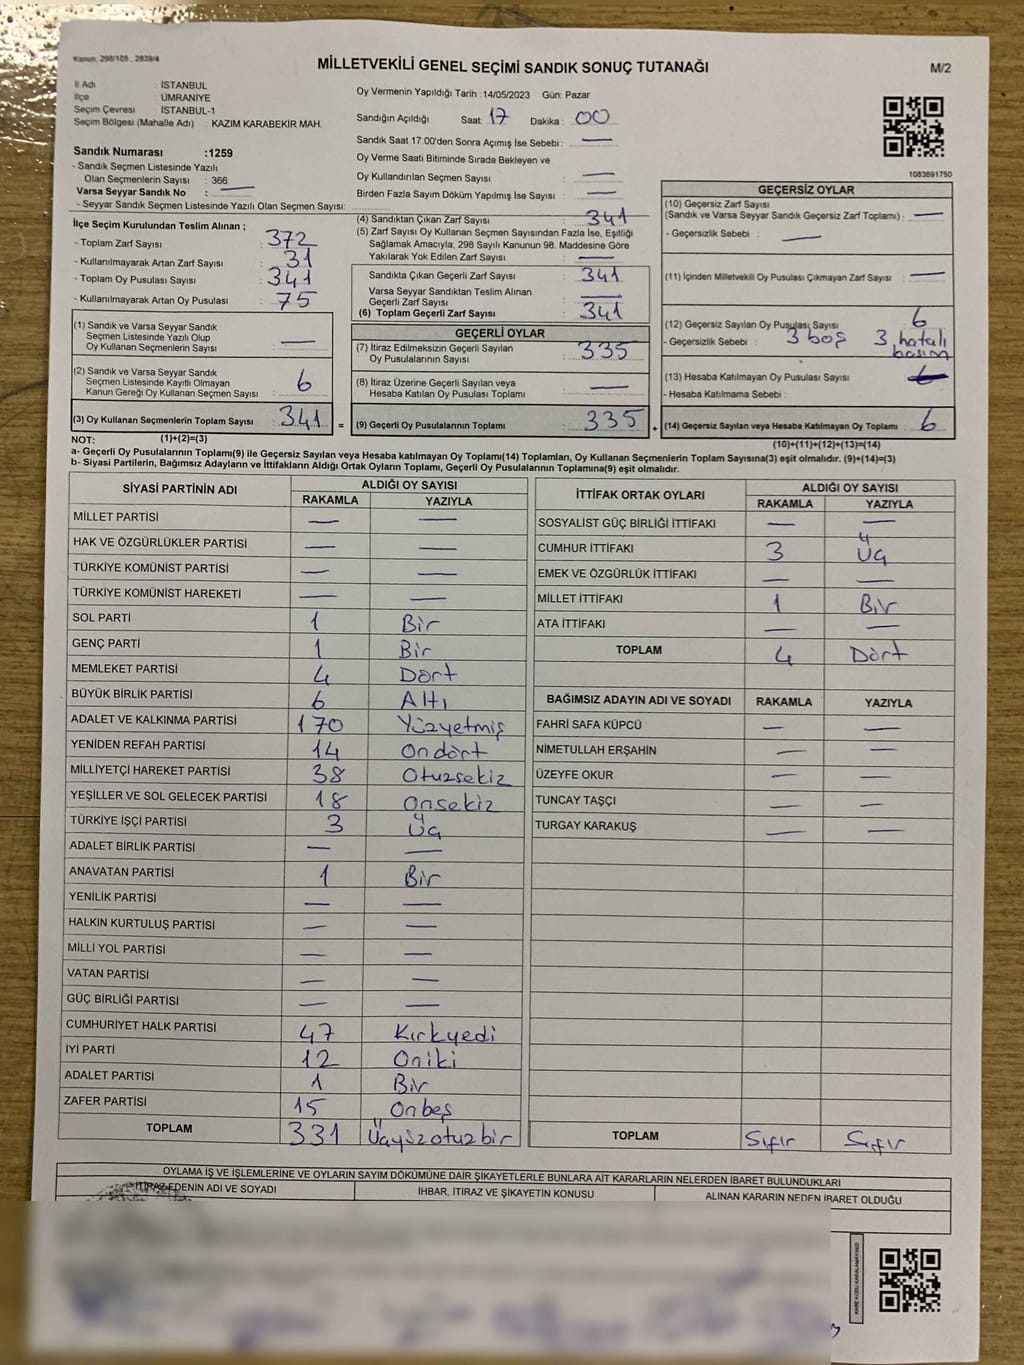 Kanun, 298/105 , 2839/4
MİLLETVEKİLİ GENEL SEÇİMİ SANDIK SONUÇ TUTANAĞI
M/2
İl Adı : İSTANBUL
İlçe : ÜMRANİYE
Seçim Çevresi : İSTANBUL-1
Seçim Bölgesi (Mahalle Adı) : KAZIM KARABEKİR MAH.
Sandık Numarası :1259
- Sandık Seçmen Listesinde Yazılı
Olan Seçmenlerin Sayısı : 366
Varsa Seyyar Sandık No : —
- Seyyar Sandık Seçmen Listesinde Yazılı Olan Seçmen Sayısı:
Oy Vermenin Yapıldığı Tarih :14/05/2023 Gün: Pazar
Sandığın Açıldığı Saat: 17 Dakika : 00
Sandık Saat 17:00'den Sonra Açımış İse Sebebi : —
Oy Verme Saati Bitiminde Sırada Bekleyen ve
Oy Kullandırılan Seçmen Sayısı : —
Birden Fazla Sayım Döküm Yapılmış İse Sayısı : —
1083691750
İlçe Seçim Kurulundan Teslim Alınan ;
- Toplam Zarf Sayısı : 372
- Kullanılmayarak Artan Zarf Sayısı : 31
- Toplam Oy Pusulası Sayısı : 341
- Kullanılmayarak Artan Oy Pusulası : 75
(1) Sandık ve Varsa Seyyar Sandık
Seçmen Listesinde Yazılı Olup
Oy Kullanan Seçmenlerin Sayısı : —
(2) Sandık ve Varsa Seyyar Sandık
Seçmen Listesinde Kayıtlı Olmayan
Kanun Gereği Oy Kullanan Seçmen Sayısı : 6
(3) Oy Kullanan Seçmenlerin Toplam Sayısı : 341 =
(1)+(2)=(3)
(4) Sandıktan Çıkan Zarf Sayısı : 341
(5) Zarf Sayısı Oy Kullanan Seçmen Sayısından Fazla İse, Eşitliği
Sağlamak Amacıyla; 298 Sayılı Kanunun 98. Maddesine Göre
Yakılarak Yok Edilen Zarf Sayısı : —
Sandıkta Çıkan Geçerli Zarf Sayısı : 341
Varsa Seyyar Sandıktan Teslim Alınan
Geçerli Zarf Sayısı : —
(6) Toplam Geçerli Zarf Sayısı : 341
GEÇERLİ OYLAR
(7) İtiraz Edilmeksizin Geçerli Sayılan
Oy Pusulalarının Sayısı : 335
(8) İtiraz Üzerine Geçerli Sayılan veya
Hesaba Katılan Oy Pusulası Toplamı : —
(9) Geçerli Oy Pusulalarının Toplamı : 335 +
GEÇERSİZ OYLAR
(10) Geçersiz Zarf Sayısı
(Sandık ve Varsa Seyyar Sandık Geçersiz Zarf Toplamı) : —
- Geçersizlik Sebebi : —
(11) İçinden Milletvekili Oy Pusulası Çıkmayan Zarf Sayısı : —
(12) Geçersiz Sayılan Oy Pusulası Sayısı : 6
- Geçersizlik Sebebi : 3 boş 3 hatalı
basım
(13) Hesaba Katılmayan Oy Pusulası Sayısı
- Hesaba Katılmama Sebebi :
(14) Geçersiz Sayılan veya Hesaba Katılmayan Oy Toplamı : 6
(10)+(11)+(12)+(13)=(14)
NOT:
a- Geçerli Oy Pusulalarının Toplamı(9) ile Geçersiz Sayılan veya Hesaba katılmayan Oy Toplamı(14) Toplamları, Oy Kullanan Seçmenlerin Toplam Sayısına(3) eşit olmalıdır. (9)+(14)=(3)
b- Siyasi Partilerin, Bağımsız Adayların ve İttifakların Aldığı Ortak Oyların Toplamı, Geçerli Oy Pusulalarının Toplamına(9) eşit olmalıdır.
SİYASİ PARTİNİN ADI ALDIĞI OY SAYISI
RAKAMLA YAZIYLA
MİLLET PARTİSİ — —
HAK VE ÖZGÜRLÜKLER PARTİSİ — —
TÜRKİYE KOMÜNİST PARTİSİ — —
TÜRKİYE KOMÜNİST HAREKETİ — —
SOL PARTİ 1 Bir
GENÇ PARTİ 1 Bir
MEMLEKET PARTİSİ 4 Dört
BÜYÜK BİRLİK PARTİSİ 6 Altı
ADALET VE KALKINMA PARTİSİ 170 Yüzyetmiş
YENİDEN REFAH PARTİSİ 14 Ondört
MİLLİYETÇİ HAREKET PARTİSİ 38 Otuzsekiz
YEŞİLLER VE SOL GELECEK PARTİSİ 18 Onsekiz
TÜRKİYE İŞÇİ PARTİSİ 3 Üç
ADALET BİRLİK PARTİSİ — —
ANAVATAN PARTİSİ 1 Bir
YENİLİK PARTİSİ — —
HALKIN KURTULUŞ PARTİSİ — —
MİLLİ YOL PARTİSİ — —
VATAN PARTİSİ — —
GÜÇ BİRLİĞİ PARTİSİ — —
CUMHURİYET HALK PARTİSİ 47 Kırkyedi
İYİ PARTİ 12 Oniki
ADALET PARTİSİ 1 Bir
ZAFER PARTİSİ 15 Onbeş
TOPLAM 331 Üçyüzotuzbir
İTTİFAK ORTAK OYLARI ALDIĞI OY SAYISI
RAKAMLA YAZIYLA
SOSYALİST GÜÇ BİRLİĞİ İTTİFAKI — —
CUMHUR İTTİFAKI 3 Üç
EMEK VE ÖZGÜRLÜK İTTİFAKI — —
MİLLET İTTİFAKI 1 Bir
ATA İTTİFAKI — —
TOPLAM 4 Dört
BAĞIMSIZ ADAYIN ADI VE SOYADI RAKAMLA YAZIYLA
FAHRİ SAFA KÜPCÜ — —
NİMETULLAH ERŞAHİN — —
ÜZEYFE OKUR — —
TUNCAY TAŞÇI — —
TURGAY KARAKUŞ — —
TOPLAM Sıfır Sıfır
OYLAMA İŞ VE İŞLEMLERİNE VE OYLARIN SAYIM DÖKÜMÜNE DAİR ŞİKAYETLERLE BUNLARA AİT KARARLARIN NELERDEN İBARET BULUNDUKLARI
İTİRAZ EDENİN ADI VE SOYADI İHBAR, İTİRAZ VE ŞİKAYETİN KONUSU ALINAN KARARIN NEDEN İBARET OLDUĞU
KARE KODU KARALAMAYINIZ!